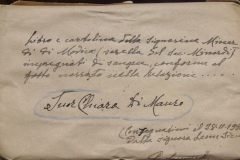 Libro e cartolina della Signorina Minar
di di Modica (sorella del Sac. Minardi)
impregnati di sangue, conforme al
fatto narrato nella relazione ....
Suor Chiara Di Mauro
(Consegnatimi il 28-11-19
dalla signora